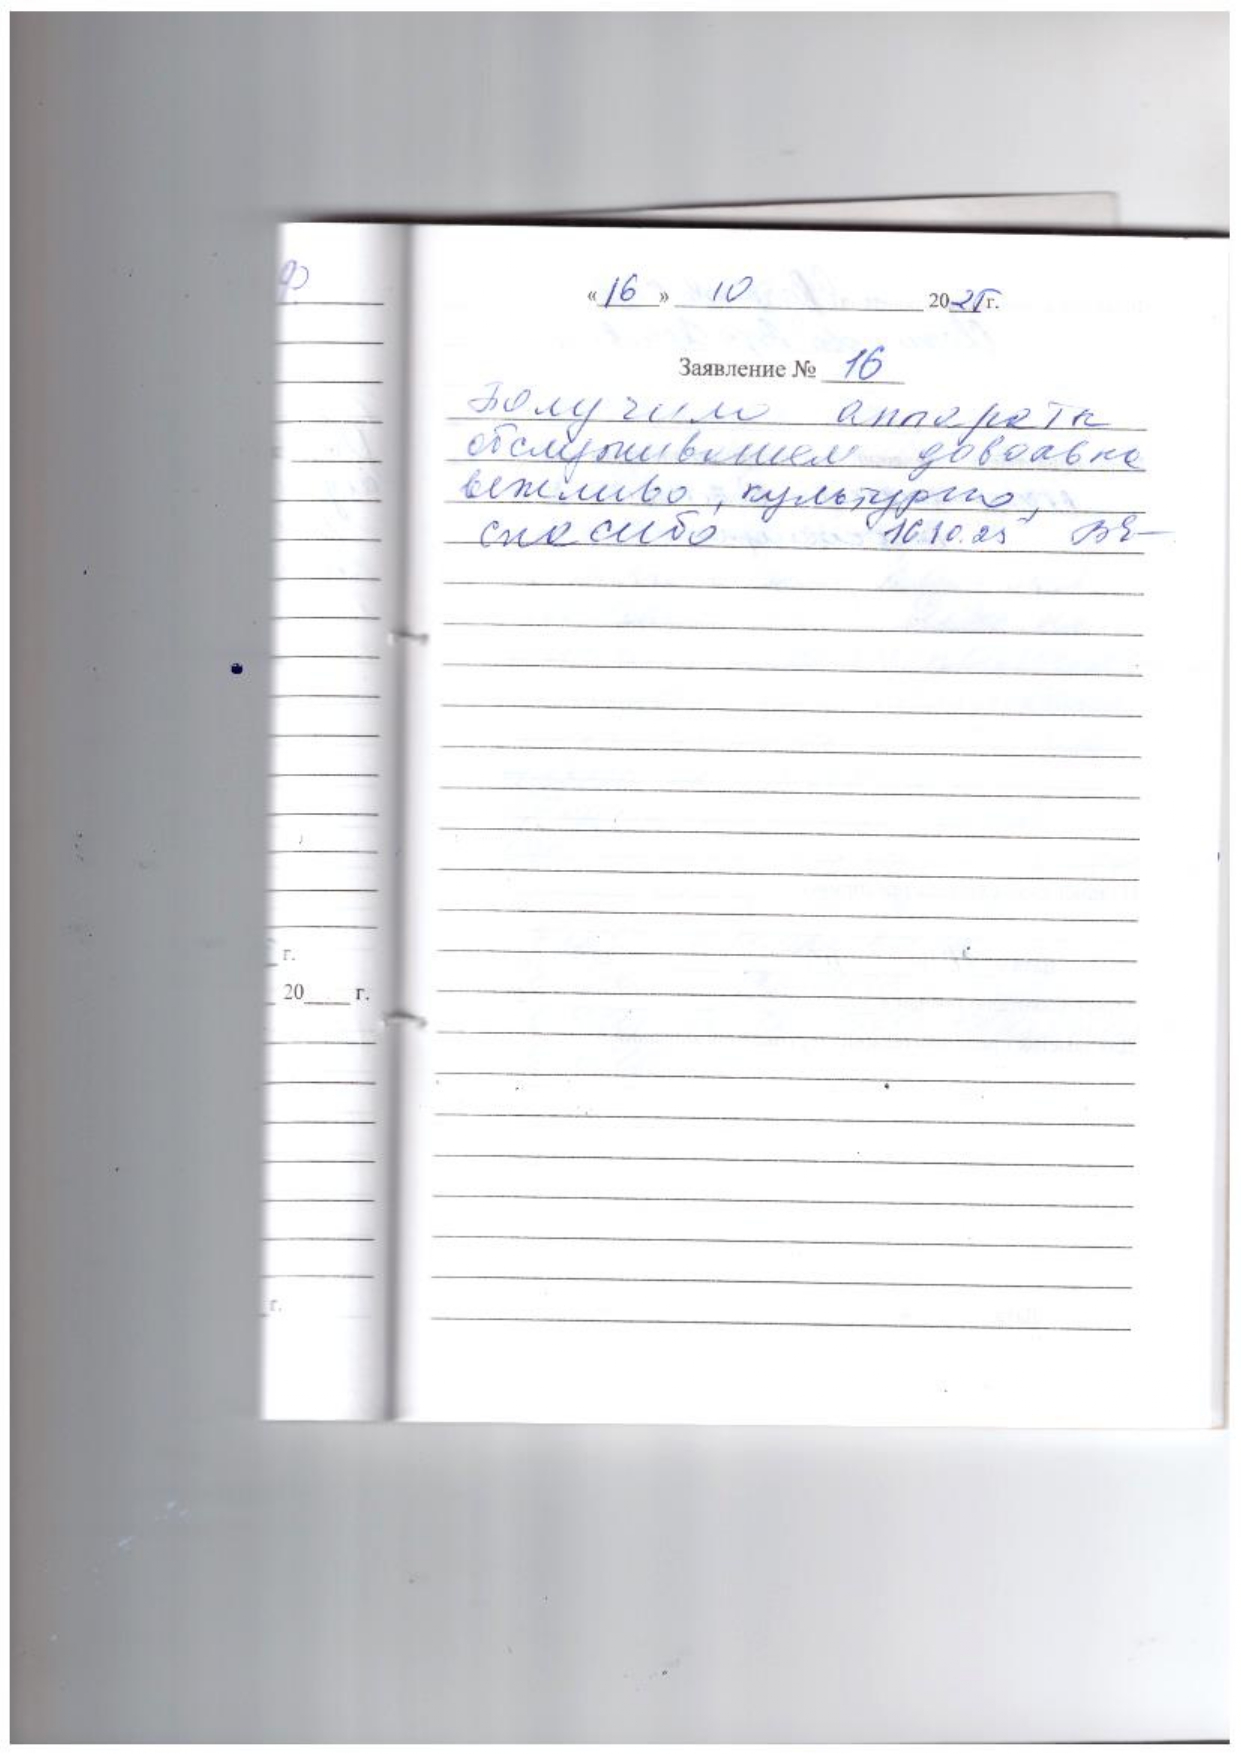 « 16 » 10 2025 г.
Заявление № 16
получила аппараты
обслуживанием довольна
вежливо, культурно,
спасибо 16.10.25
г.
20____ г.
г.